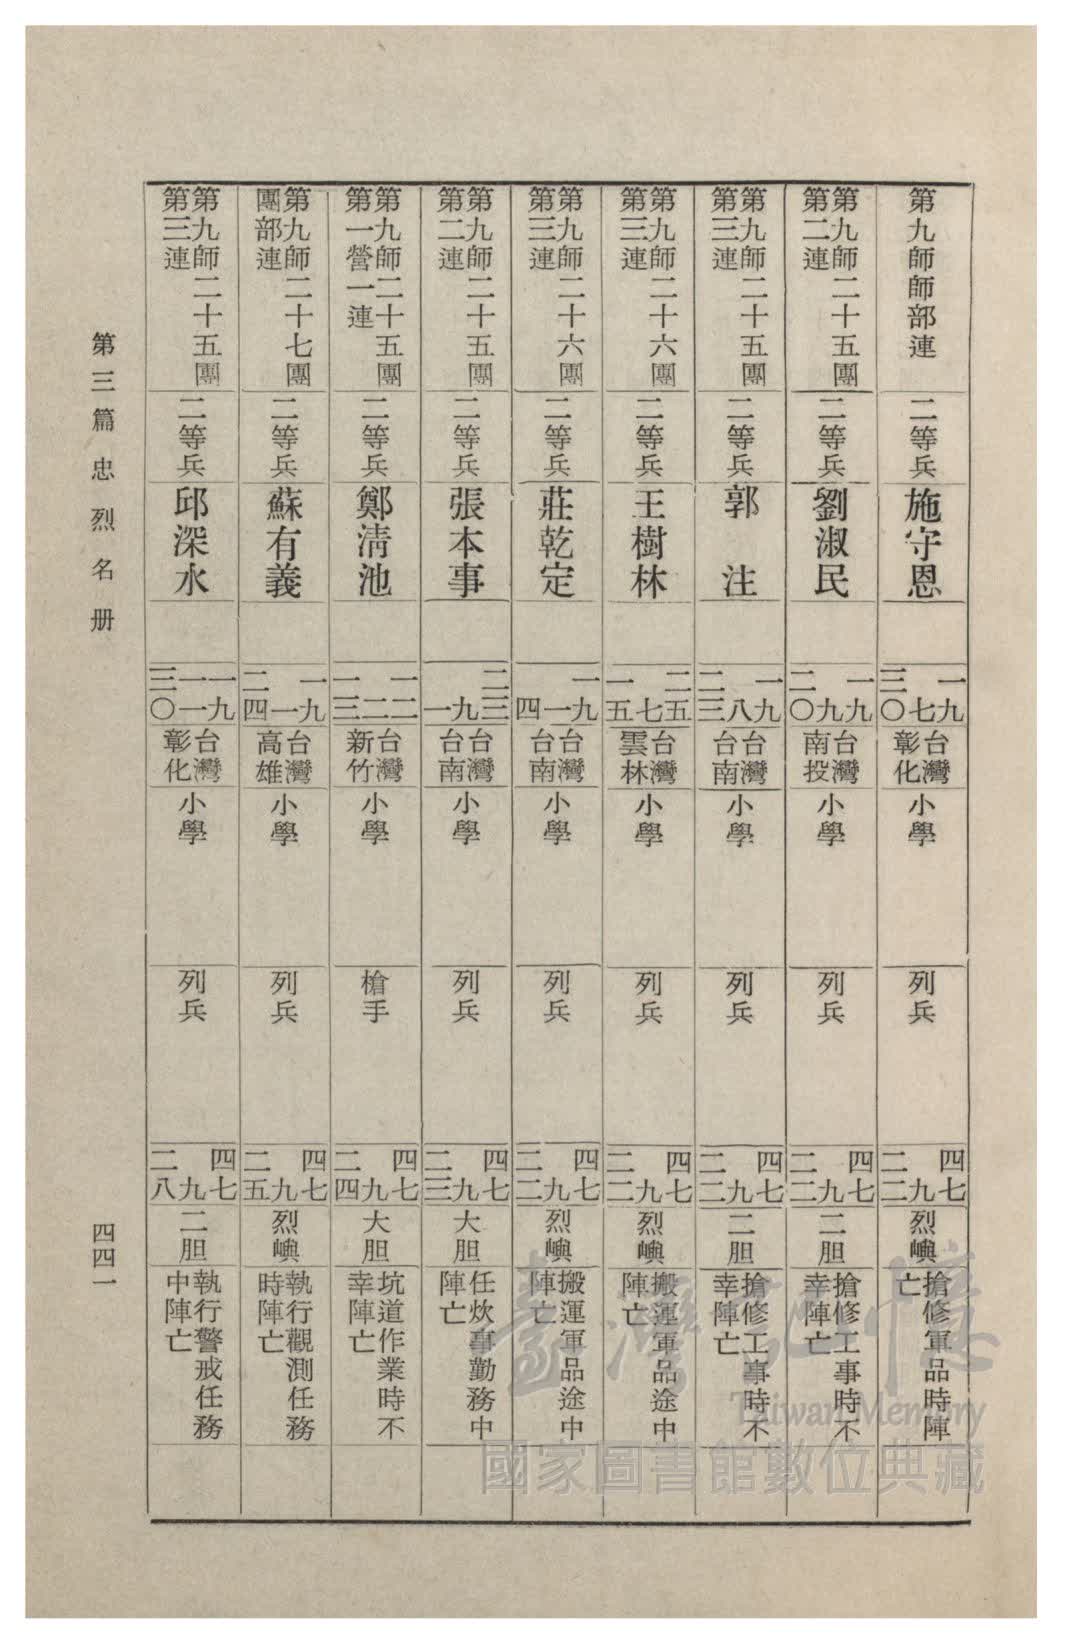 第九師師部連
二等兵
施守恩
一九
七
三〇
台灣
彰化
小學
列兵
四七
九
二二
烈嶼
搶修軍品時陣
亡
第九師二十五團
第二連
二等兵
劉淑民
一九
九
二〇
台灣
南投
小學
列兵
四七
九
二二
二胆
搶修工事時不
幸陣亡
第九師二十五團
第三連
二等兵
郭注
一九
八
二三
台灣
台南
小學
列兵
四七
九
二二
二胆
搶修工事時不
幸陣亡
第九師二十六團
第三連
二等兵
王樹林
二五
七
一五
台灣
雲林
小學
列兵
四七
九
二二
烈嶼
搬運軍品途中
陣亡
第九師二十六團
第三連
二等兵
莊乾定
一九
一
四
台灣
台南
小學
列兵
四七
九
二二
烈嶼
搬運軍品途中
陣亡
第九師二十五團
第二連
二等兵
張本事
二三
九
一
台灣
台南
小學
列兵
四七
九
二三
大胆
任炊事勤務中
陣亡
第九師二十五團
第一營一連
二等兵
鄭清池
一二
二
一三
台灣
新竹
小學
槍手
四七
九
二四
大胆
坑道作業時不
幸陣亡
第九師二十七團
團部連
二等兵
蘇有義
一九
一
二四
台灣
高雄
小學
列兵
四七
九
二五
烈嶼
執行觀測任務
時陣亡
第九師二十五團
第三連
二等兵
邱深水
一九
一一
三〇
台灣
彰化
小學
列兵
四七
九
二八
二胆
執行警戒任務
中陣亡
第三篇 忠烈名册
四四一
臺灣記憶
Taiwan Memory
國家圖書館數位典藏